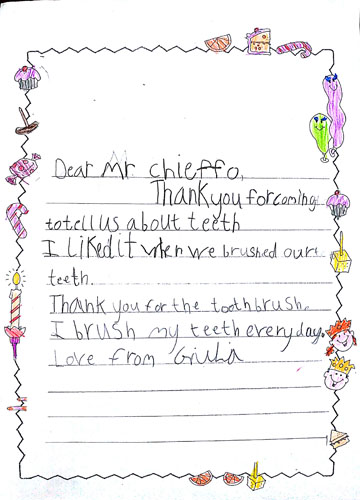 Dear Mr Chieffo,
Thank you for coming
to tell us about teeth
I liked it when we brushed our
teeth.
Thank you for the toothbrush.
I brush my teeth every day.
Love from Giulia